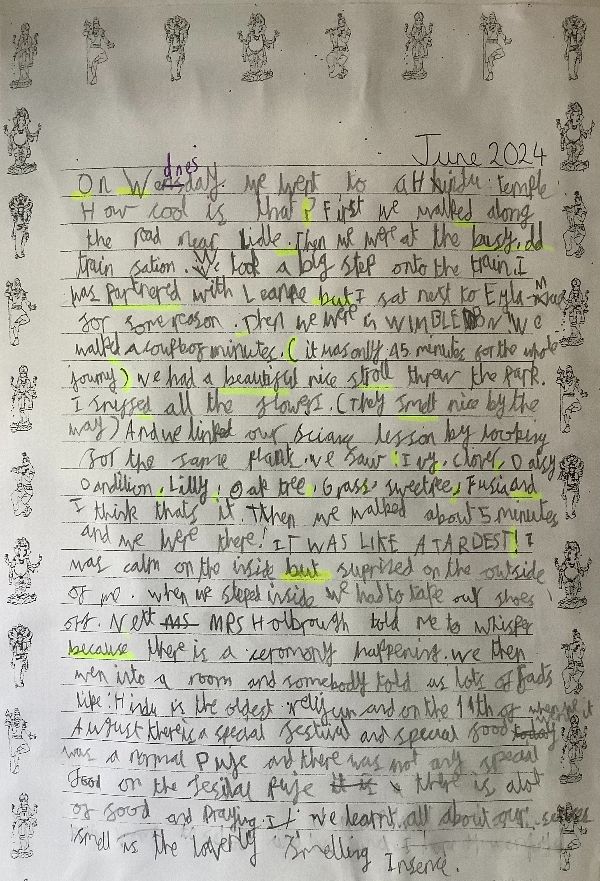 June 2024
On Wednesday we went to a Hindu temple
How cool is that? First we walked along
the road near Lidle. Then we were at the busy, old
train sation. We took a big step onto the train. I
was partnered with Leanne but I sat next to Eyla-
for some reason. Then we were in WIMBLEDON We
walked a couple of minutes. (it was only 45 minutes for the whole
journy) we had a beautiful nice stroll threw the park.
I sniffed all the flowers. (They smelt nice by the
way) And we linked our sciance lesson by looking
for the same plants. we saw: Ivy, Clover, Daisy
Dandilion, Lilly, Oak tree, Grass, sweetree, Fusia and
I think thats it. Then we walked about 5 minutes
and we were there! IT WAS LIKE A TARDEST! I
was calm on the inside but suprised on the outside
of me. when we steped inside we had to take our shoes
off. Next MRS Holbrough told me to whisper
because there is a ceremony happening. we then
wen into a room and somebody told us lots of facts
like: Hindu is the oldest religiun and on the 19th of
August there is a special festival and special food today
was a normal Puje and there was not any special
food on the fesival Puje there is alot
of food and Praying. we learnt all about our senses
smell is the loverly smelling Insence.